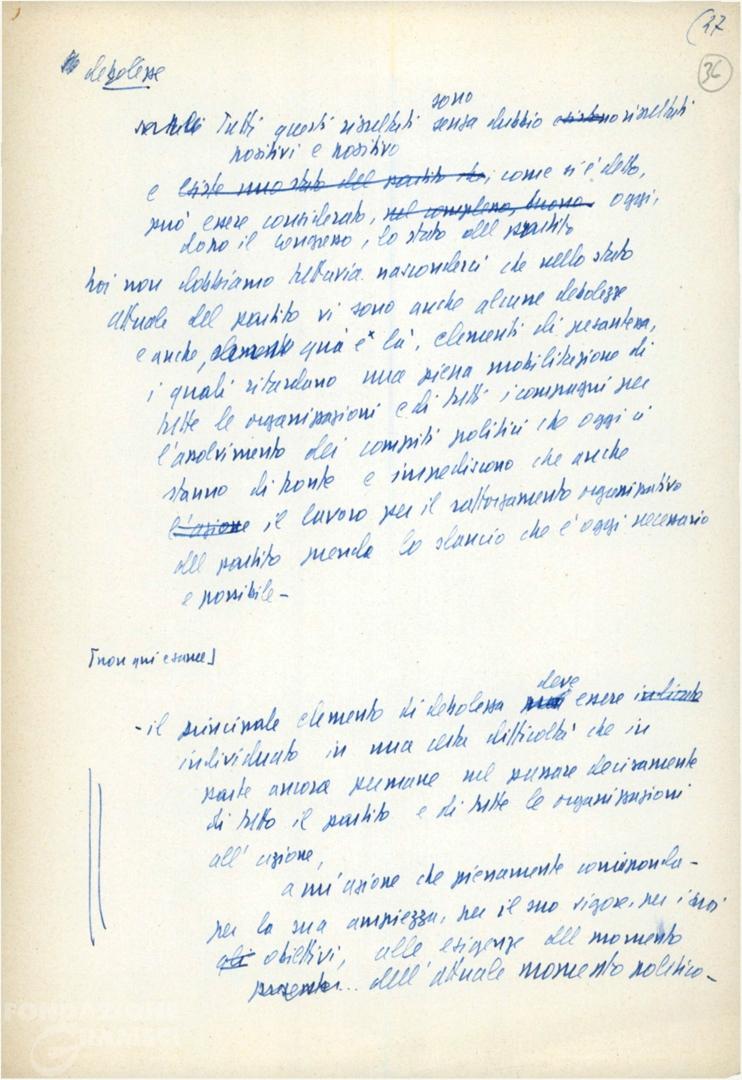 (37
36
debolezze
sono
Tutti questi risultati senza dubbio esistono risultati
positivi e positivo
e esiste uno stato del partito che, come si è detto,
può essere considerato, nel complesso, buono. oggi,
dopo il congresso, lo stato del partito
Noi non dobbiamo tuttavia nasconderci che nello stato
attuale del partito vi sono anche alcune debolezze
e anche, elementi qua e là, elementi di pesantezza,
i quali ritardano una piena mobilitazione di
tutte le organizzazioni e di tutti i compagni per
l'assolvimento dei compiti politici che oggi ci
stanno di fronte e impediscono che anche
l'azione il lavoro per il rafforzamento organizzativo
del partito prenda lo slancio che è oggi necessario
e possibile -
[non qui esame]
deve
- il principale elemento di debolezza può essere indicato
individuato in una certa difficoltà che in
parte ancora permane nel passare decisamente
di tutto il partito e di tutte le organizzazioni
all'azione,
a un'azione che pienamente corrisponda -
per la sua ampiezza, per il suo vigore, per i suoi
gli obiettivi, alle esigenze del momento
presente... dell'attuale momento politico -
FONDAZIONE
GRAMSCI